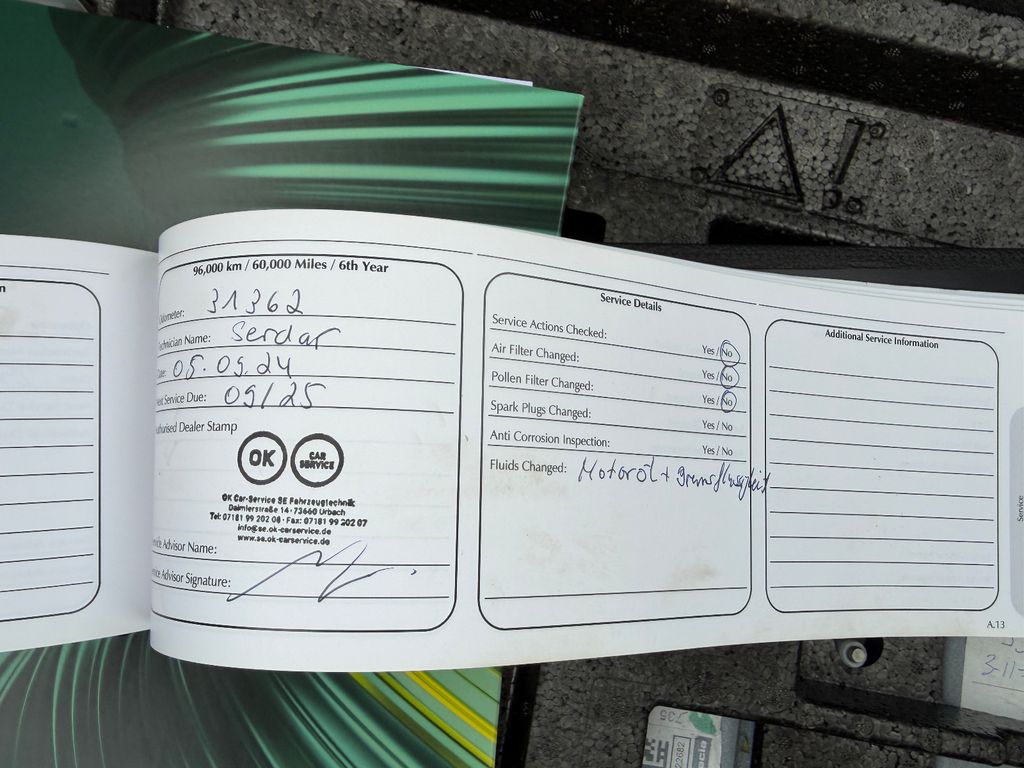 96,000 km / 60,000 Miles / 6th Year
31362
Technician Name: Serdar
05.09.24
Service Due: 09/25
Dealer Stamp
OK CAR SERVICE
OK Car-Service SE Fahrzeugtechnik
Daimlerstraße 14 · 73660 Urbach
Tel: 07181 99 202 08 · Fax: 07181 99 202 07
info@se.ok-carservice.de
www.se.ok-carservice.de
Advisor Name:
Advisor Signature:
Service Details
Service Actions Checked: Yes / No
Air Filter Changed: Yes / No
Pollen Filter Changed: Yes / No
Spark Plugs Changed: Yes / No
Anti Corrosion Inspection: Yes / No
Fluids Changed: Motoröl + Bremsflüssigkeit
Additional Service Information
A.13
Service
735
22682